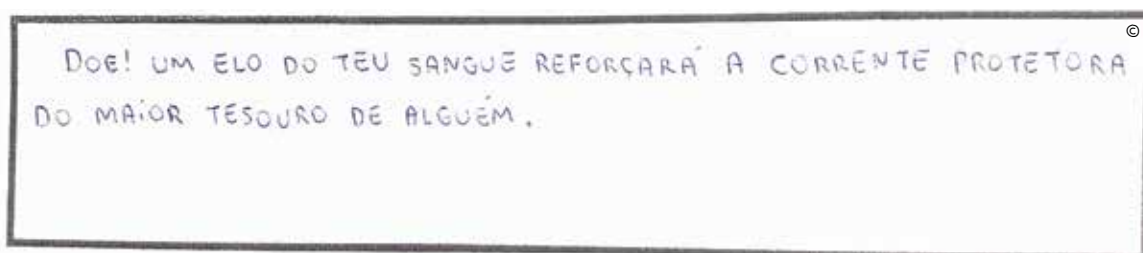 ©
DOE! UM ELO DO TEU SANGUE REFORÇARÁ A CORRENTE PROTETORA
DO MAIOR TESOURO DE ALGUÉM.